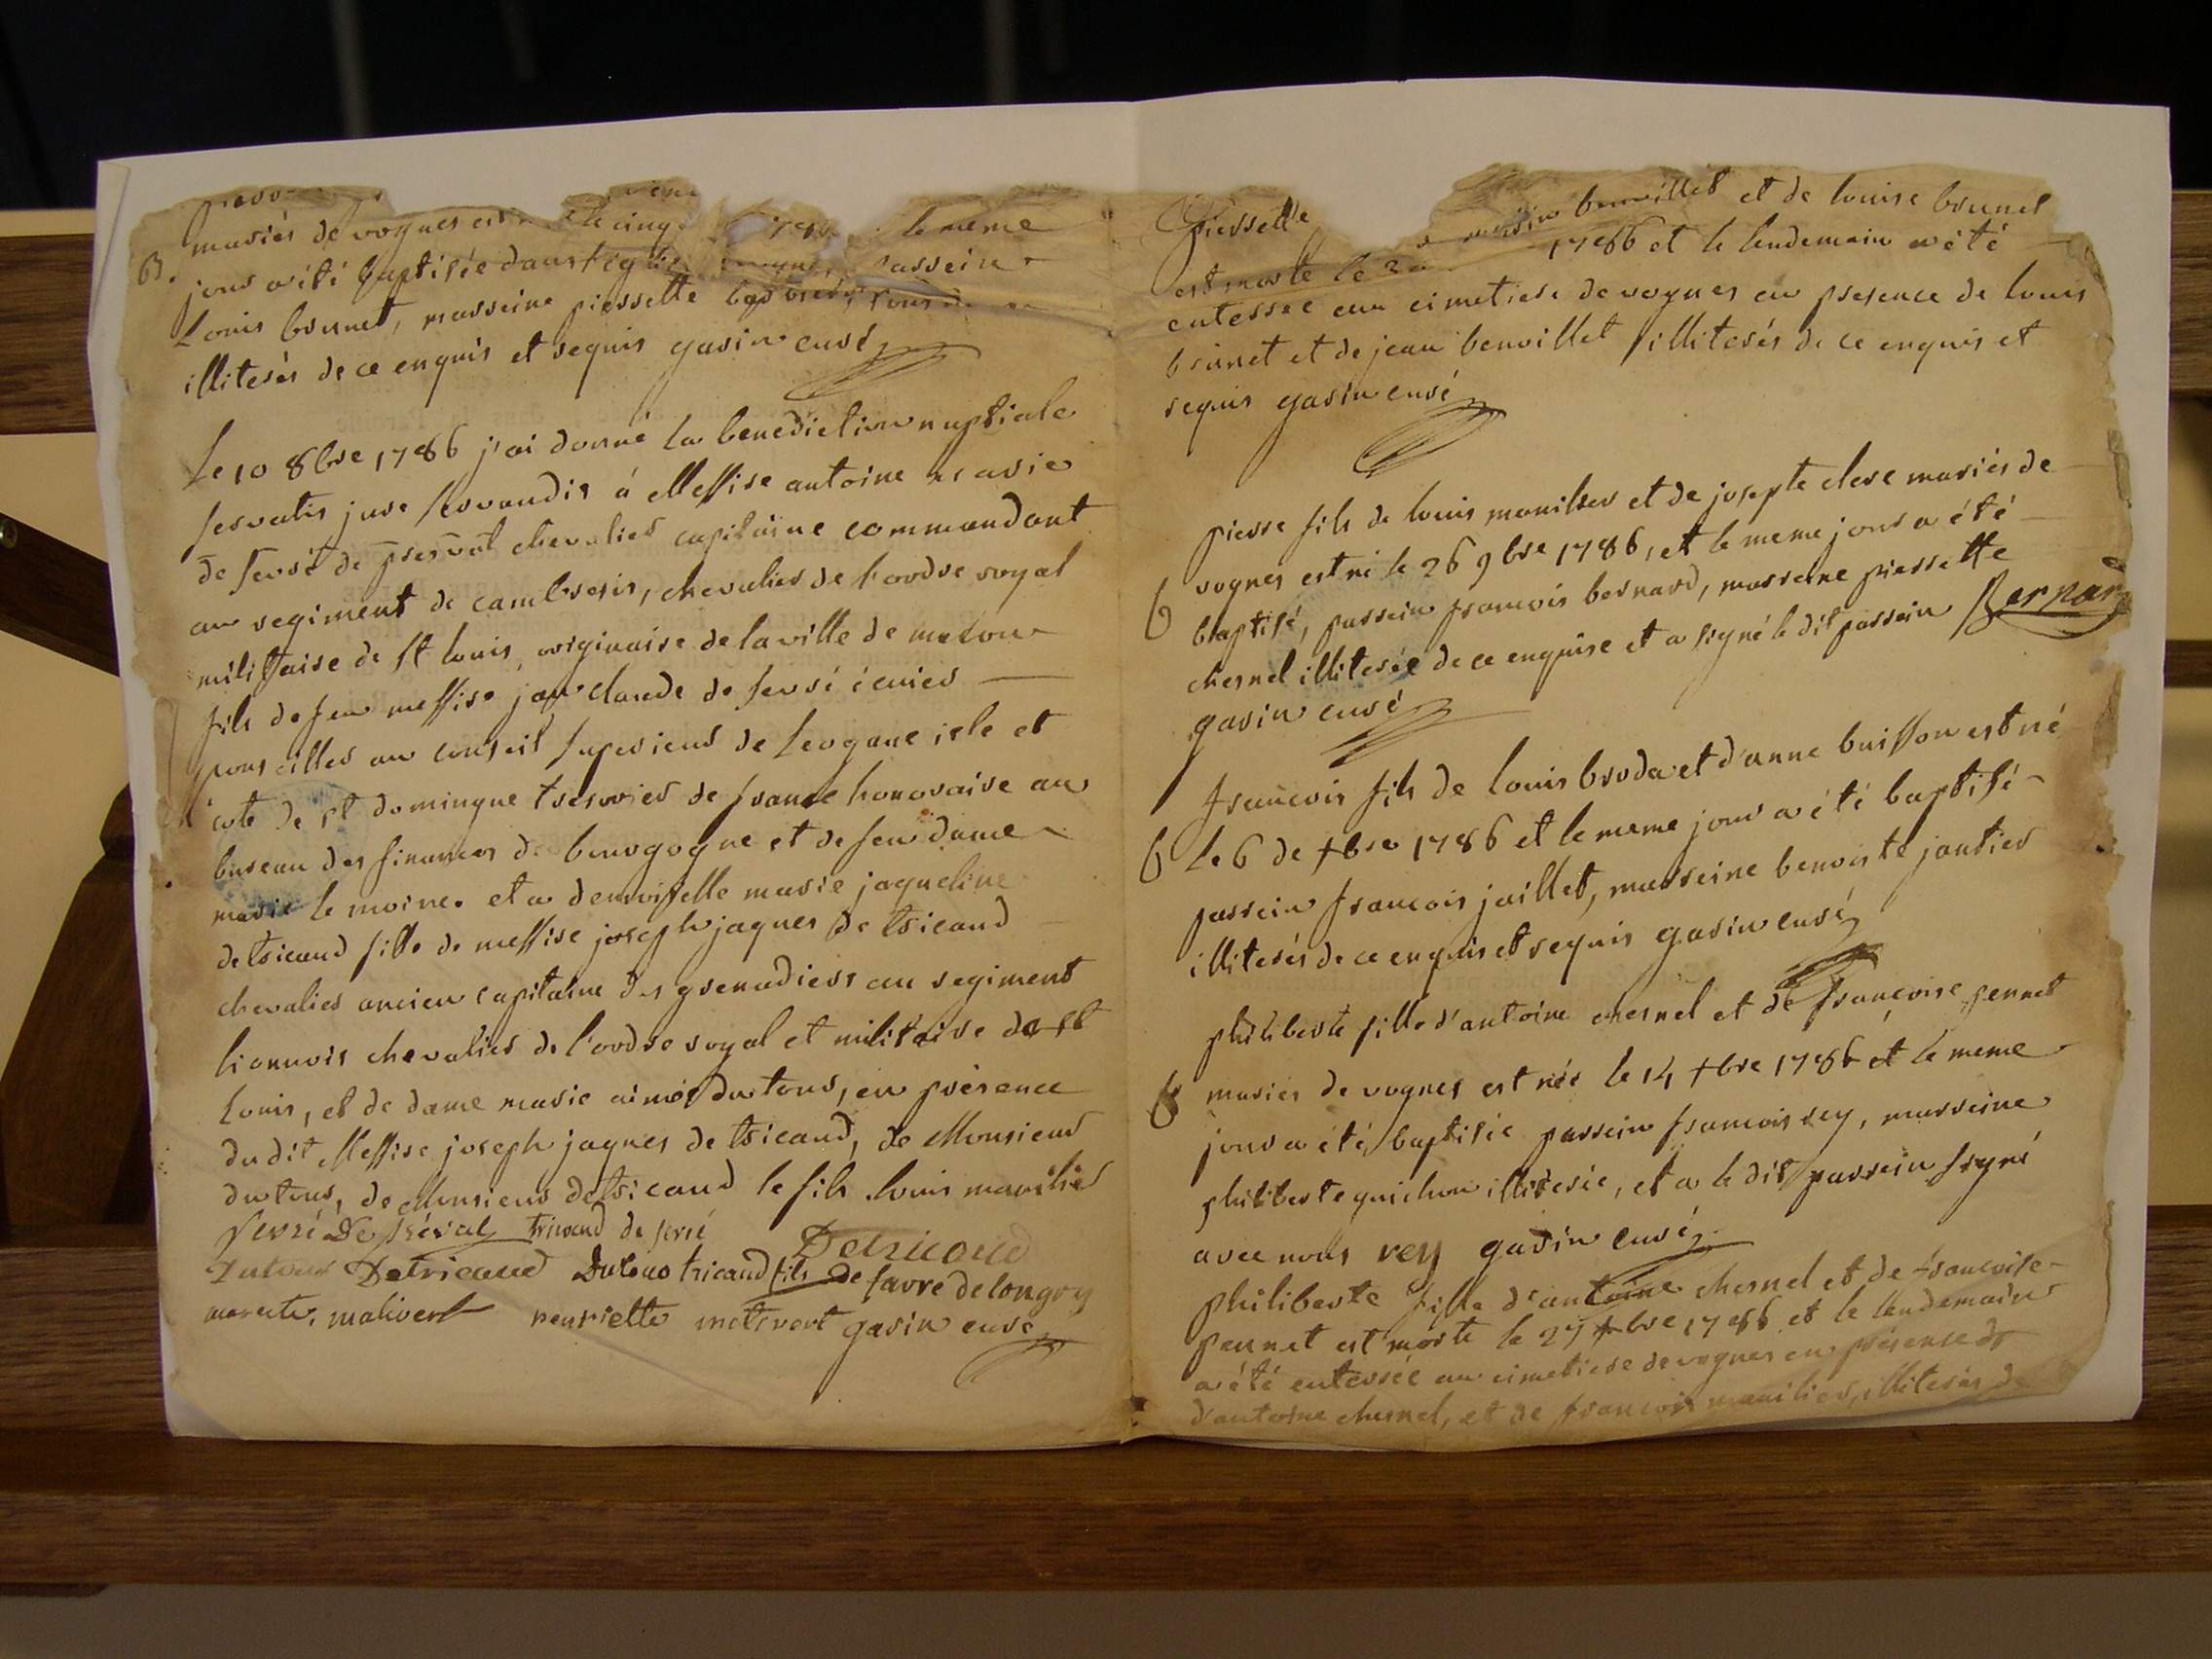 mariés de vognes est le cinq le meme
B. jour a été baptisée dans l'eglise parrein
Louis brunet, marreine pierrette
illiterés de ce enquis et requis gavin curé
Le 10 8bre 1786 j'ai donné la benediction nuptiale
servatis jure servandis á Messire antoine
de serré de preval chevalier capitaine commandant
au regiment de cambresis, chevalier de l'ordre royal
militaire de st louis, originaire de la ville de macon
fils de feu messire jean claude de serré écuier
conseiller au conseil superieur de leogane isle et
cote de st domingue tresorier de france honoraire au
bureau des finances de bourgogne et de feu dame
marie le moine. et a demoiselle marie jaqueline
de tricaud fille de messire joseph jaques de tricaud
chevalier ancien capitaine des grenadiers au regiment
lionnois chevalier de l'ordre royal et militaire de st
Louis, et de dame marie aimée du tour, en présence
du dit Messire joseph jaques de tricaud, de Monsieur
du tour, de Monsieur de tricaud le fils. louis manilier
serré De préval tricaud de serré Detricaud
Dutour Detricaud Dutour tricaud fils De favre de longry
malivert henriette malivert gavin curé
Pierrette benvillet et de louise brunet
est morte le 1786 et le lendemain a été
enterree au cimetiere de vognes en presence de louis
brunet et de jean benvillet illiterés de ce enquis et
requis gavin curé
pierre fils de louis manilier et de josepte clerc mariés de
vognes est né le 26 9bre 1786, et le meme jour a été
b baptisé, parrein francois bernard, marreine pierrette
chernel illiterée de ce enquise et a signé le dit parrein Bernard
gavin curé
francois fils de louis broda et d'anne buisson est né
b le 6 de xbre 1786 et le meme jour a été baptisé
parrein francois jaillet, marreine benoiste jantier
illiterés de ce enquis et requis gavin curé
philiberte fille d'antoine chernel et de françoise pennet
b mariés de vognes est née le 14 xbre 1786 et le meme
jour a été baptisée parrein francois rey, marreine
philiberte guichon illiterée, et a le dit parrein signé
avec nous rey gavin curé
philiberte fille d'antoine chernel et de francoise
pennet est morte le 27 xbre 1786 et le lendemain
a été enterrée au cimetiere de vognes en présence de
d'antoine chernel, et de francois manilier, illiterés de